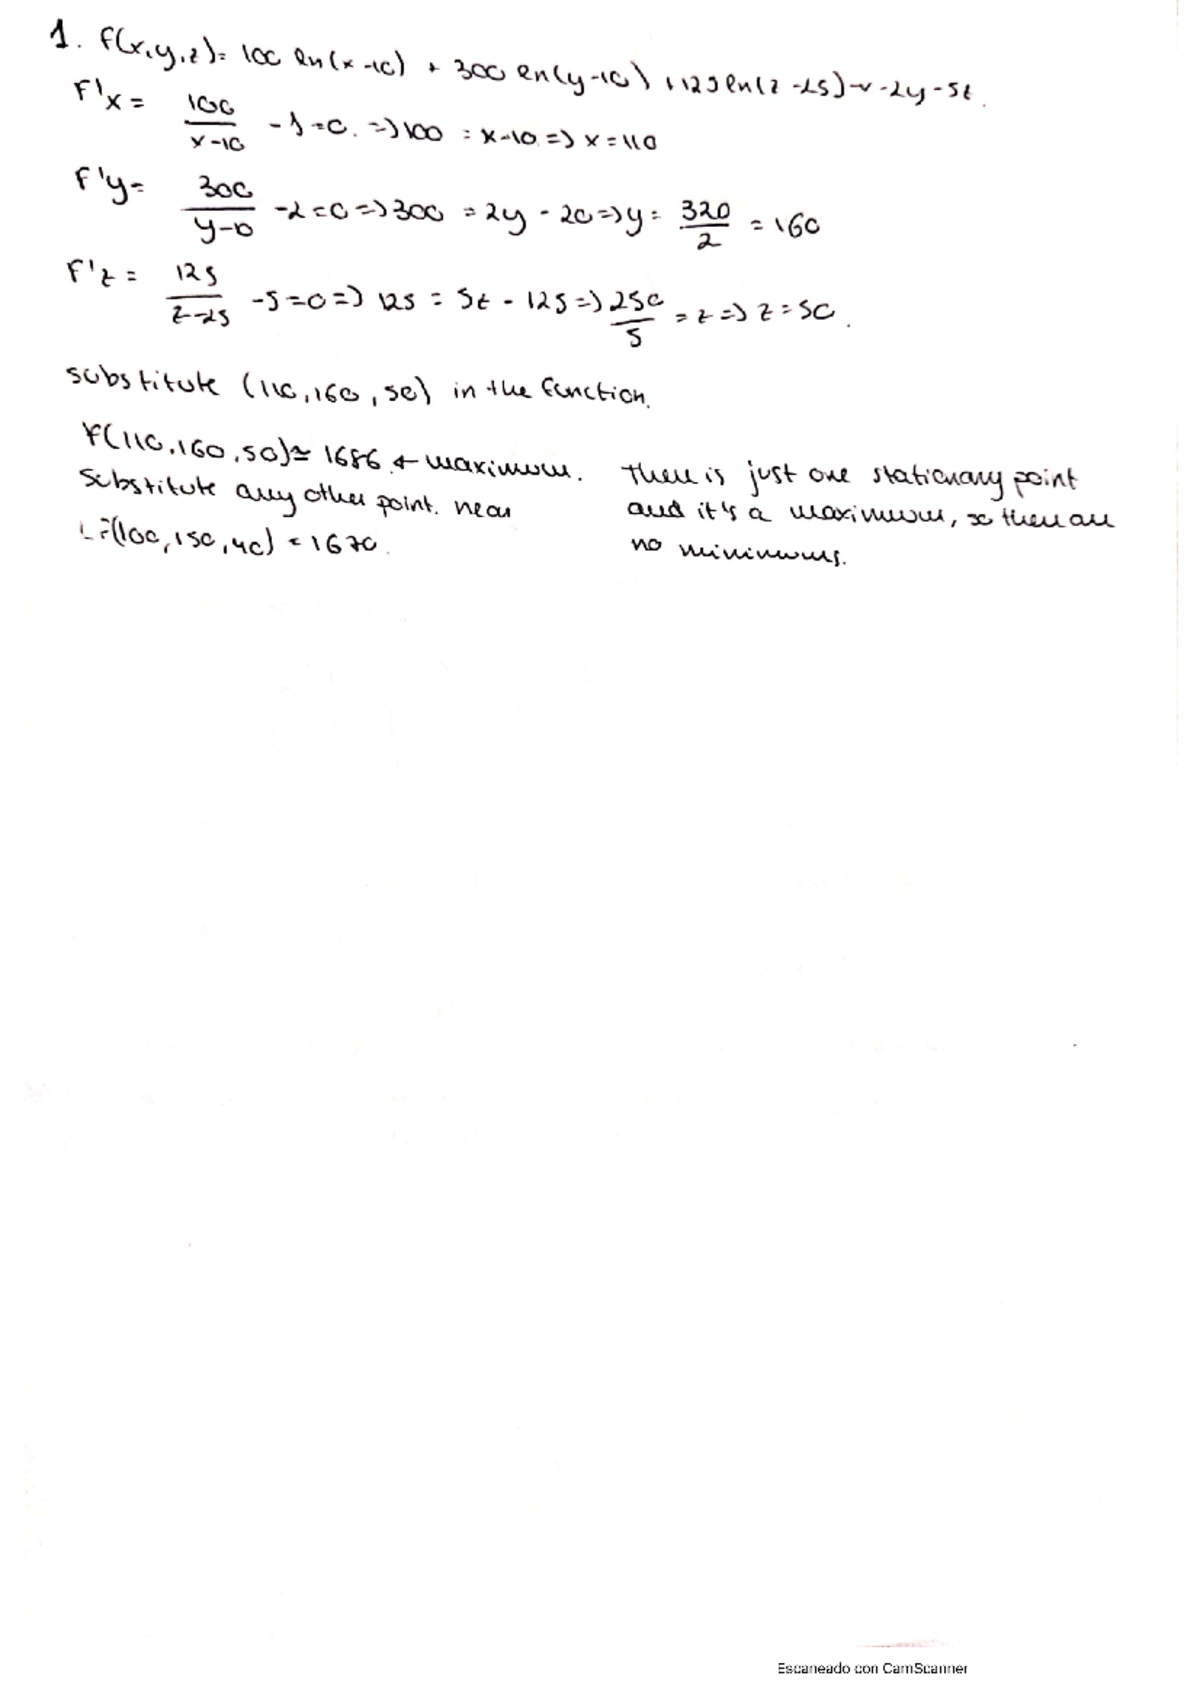 1. f(x,y,z)= 100 ln(x-10) + 300 ln(y-10) + 125 ln(z-25) -x -2y -5z.
F'x = 100/(x-10) -1 =0. => 100 = x-10 => x = 110
F'y = 300/(y-10) -2=0 => 300 = 2y - 20 => y = 320/2 = 160
F'z = 125/(z-25) -5=0 => 125 = 5z - 125 => 250/5 = z => z = 50.
substitute (110,160,50) in the function.
F(110,160,50)≃ 1686 ← maximum.
Substitute any other point near
F(100,150,40) = 1670.
There is just one stationary point
and it's a maximum, so there are
no minimums.
Escaneado con CamScanner